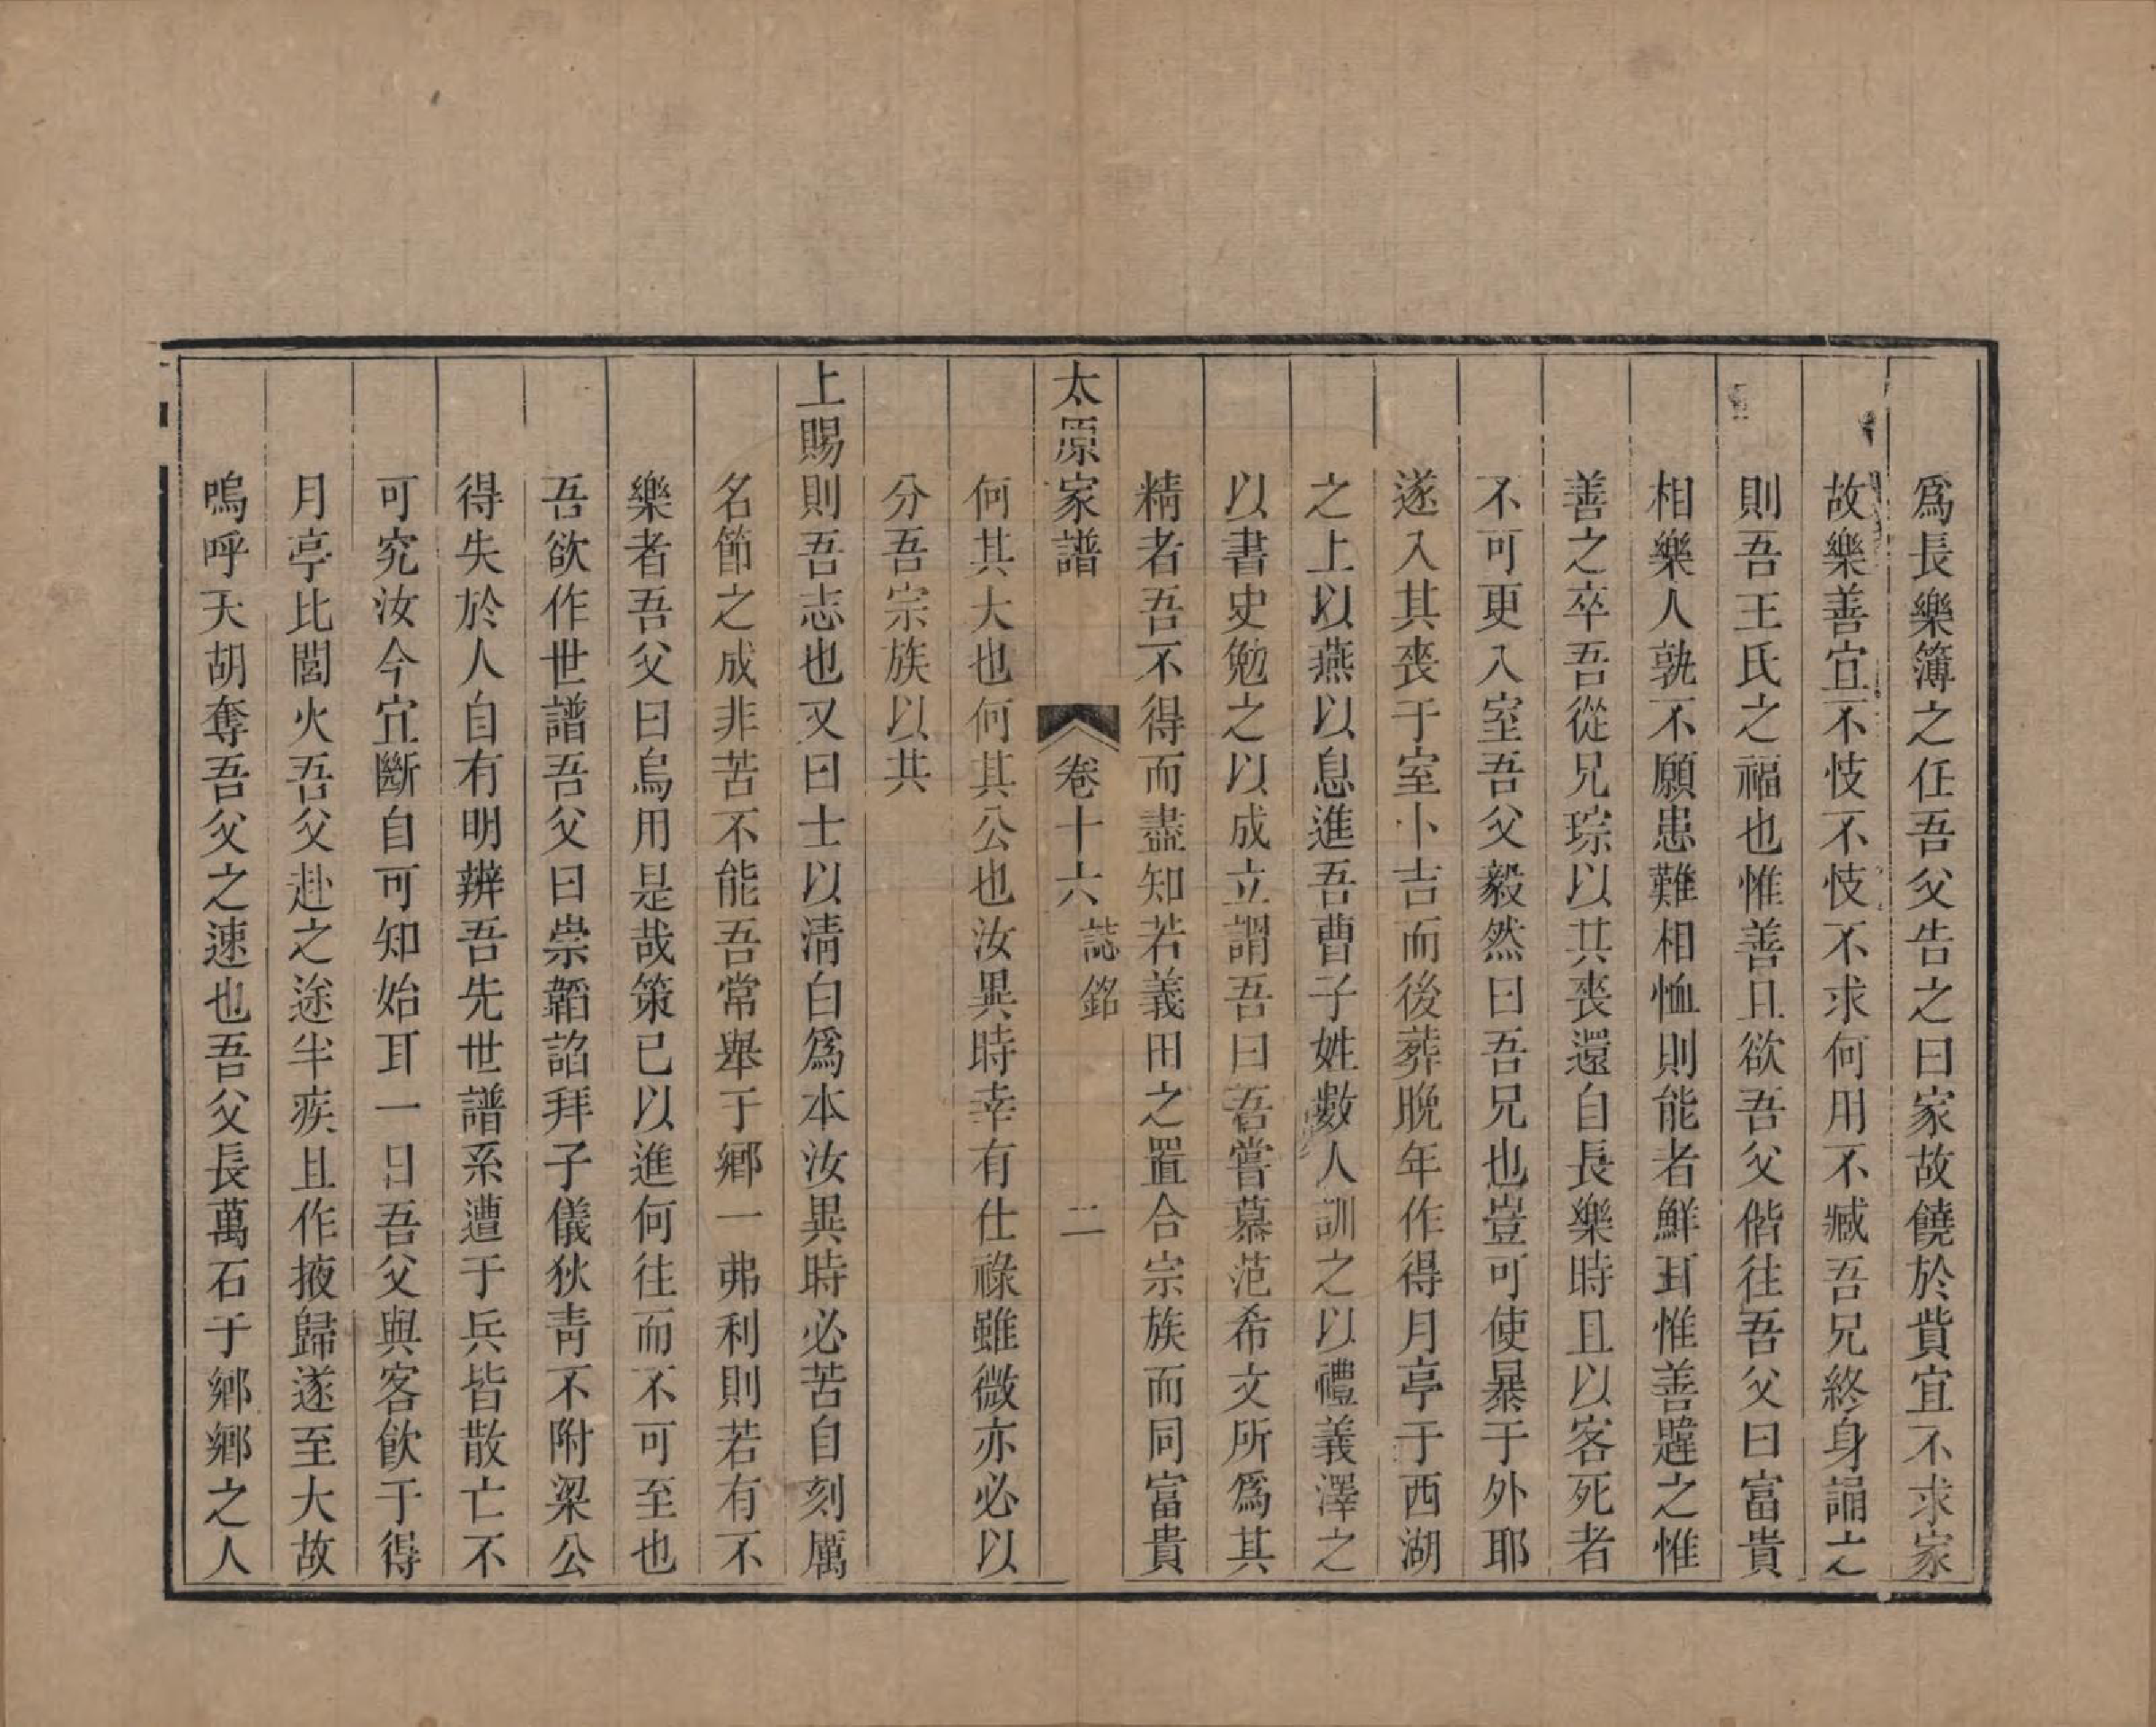 爲長樂簿之任吾父告之曰家故饒於貲宜不求家
故樂善宜不忮不忮不求何用不臧吾兄終身誦之
則吾王氏之福也惟善且欲吾父偕往吾父曰富貴
相樂人孰不願患難相恤則能者鮮耳惟善韙之惟
善之卒吾從兄琮以其喪還自長樂時且以客死者
不可更入室吾父毅然曰吾兄也豈可使暴于外耶
遂入其喪于室卜吉而後葬晚年作得月亭于西湖
之上以燕以息進吾曹子姓數人訓之以禮義澤之
以書史勉之以成立謂吾曰吾嘗慕范希文所爲其
精者吾不得而盡知若義田之置合宗族而同富貴
太原家譜 卷十六 誌銘 二
何其大也何其公也汝異時幸有仕祿雖微亦必以
分吾宗族以共
上賜則吾志也又曰士以淸白爲本汝異時必苦自刻厲
名節之成非苦不能吾常舉于鄉一弗利則若有不
樂者吾父曰烏用是哉策已以進何往而不可至也
吾欲作世譜吾父曰崇韜諂拜子儀狄靑不附梁公
得失於人自有明辨吾先世譜系遭于兵皆散亡不
可究汝今宜斷自可知始耳一日吾父與客飮于得
月亭比閭火吾父赴之途半疾且作掖歸遂至大故
嗚呼天胡奪吾父之速也吾父長萬石于鄉鄉之人